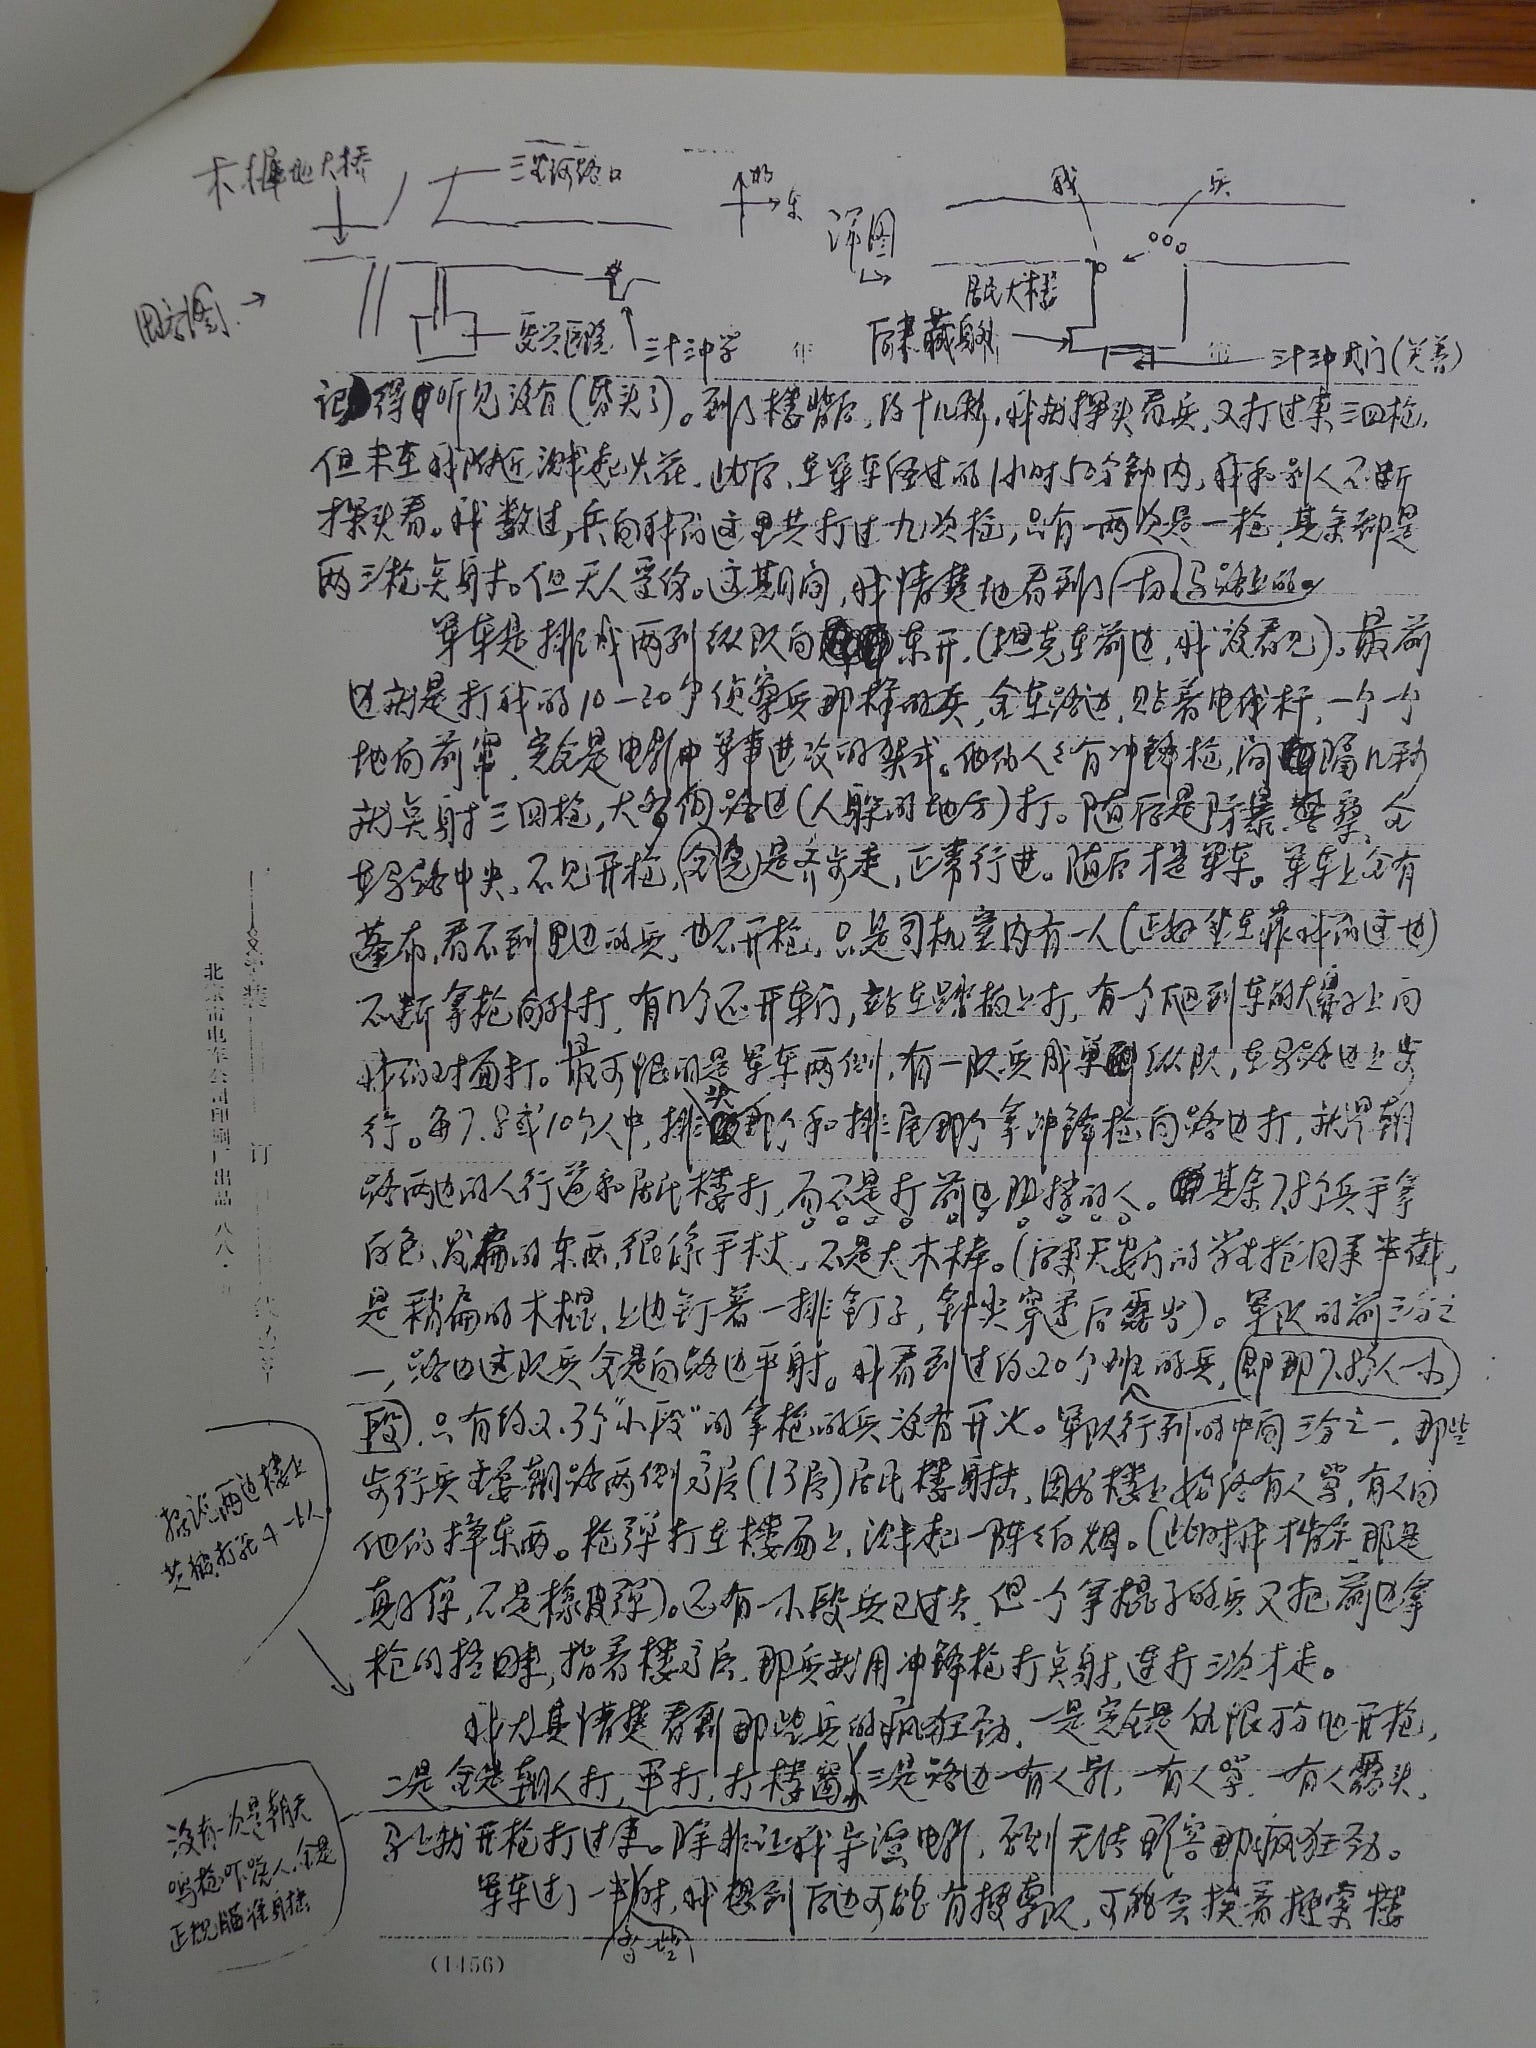 木樨地大桥
三里河路口
北
东
详图
我
兵
居民大楼
后来藏身处
三十三中大门(关着)
复兴医院
三十三中学
记得听见没有(昏头了)。到了楼背后,约十几秒,我就探头看兵,又打过来三四枪,
但未在我附近溅起火花。此后,在军车经过的1小时50分钟内,我和别人不断
探头看。我数过,兵向我们这里共打过九次枪,只有一两次是一枪,其余都是
两三枪点射。但无人受伤。这期间,我清楚地看到了一切马路上的。
军车是排成两列纵队向东开,(坦克在前边,我没看见)。最前
边就是打我的10-20个侦察兵那样的兵,全在路边,贴着电线杆,一个一个
地向前窜,完全是电影中军事进攻的架式。他们人人有冲锋枪,间隔几秒
就点射三四枪,大多向路边(人躲的地方)打。随后是防暴警察,全
在马路中央,不见开枪,全是齐步走,正常行进。随后才是军车。军车上全有
蓬布,看不到里边的兵,也不开枪。只是司机室内有一人(正好坐在靠我们这边)
不断拿枪向外打,有几个还开车门,站在踏板上打,有一个爬到车的大 上向
我们对面打。最可恨的是军车两侧,有一队兵成单纵队,在马路边上步
行。每7.8或10个人中,排头那个和排尾那个拿冲锋枪向路边打,就是朝
路两边的人行道和居民楼打,而不是打前边阻挡的人。其余7.8个兵手拿
白色、发扁的东西,很像手杖,不是大木棒。(后来天安门的学生抢回来半截,
是稍扁的木棍,上边钉着一排钉子,钉尖穿透后露出)。军队的前三分之
一,路边这队兵全是向路边平射。我看到过约20个班的兵,(即那7.8个人一小
段),只有约2.3个“小段”的拿枪的兵没有开火。军队行列的中间三分之一,那些
步行兵主要朝路两侧高层(13层)居民楼射击,因为楼上始终有人骂,有人向
他们摔东西。枪弹打在楼面上,溅起一阵阵白烟。(此时我才肯定那是
真子弹,不是橡皮弹)。还有一小段兵已过去,但一个拿棍子的兵又把前边拿
枪的拉回来,指着楼高层,那兵就用冲锋枪打点射,连打三次才走。
我尤其清楚看到那些兵的疯狂劲,一是完全是仇恨万分地开枪,
二是全是朝人打,平打,打楼窗,三是路边一有人影,一有人骂,一有人露头,
马上就开枪打过来。除非让我导演电影,否则无法形容那疯狂劲。
军车过了一半时,我想到后边可能有搜索队,可能会挨着搜索楼
据说,两边楼上
共被打死十一人。
没有一次是朝天
鸣枪吓唬人,全是
正规瞄准射击
装
订
线
北京市电车公司印刷厂出品 八八·
(1456)